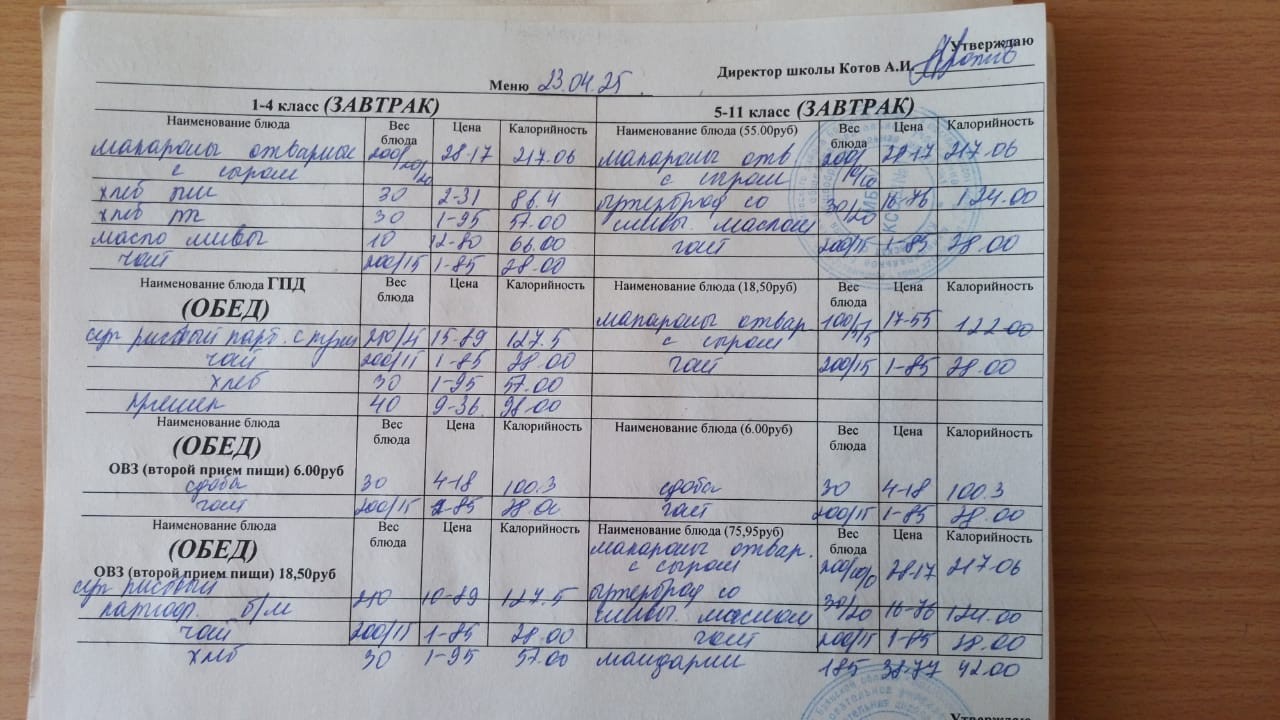 Утверждаю
Директор школы Котов А.И.
Меню 23.04.25
1-4 класс (ЗАВТРАК) 5-11 класс (ЗАВТРАК)
Наименование блюда Вес блюда Цена Калорийность Наименование блюда (55.00руб) Вес блюда Цена Калорийность
макароны отварные 200/20/20 28-17 217.06 макароны отв 200/10/10 28-17 217.06
с сыром с сыром
хлеб пш 30 2-31 86.4 бутерброд со 30/20 16-76 124.00
хлеб рж 30 1-95 57.00 сливоч. маслом
масло сливоч 10 12-80 66.00 чай 200/15 1-85 28.00
чай 200/15 1-85 28.00
Наименование блюда ГПД Вес блюда Цена Калорийность Наименование блюда (18,50руб) Вес блюда Цена Калорийность
(ОБЕД)
макароны отвар 100/5/5 17-55 122.00
суп рисовый карт. с кури 210/4 15-89 127.5 с сыром
чай 200/15 1-85 28.00 чай 200/15 1-85 28.00
хлеб 30 1-95 57.00
40 9-36 98.00
Наименование блюда Вес блюда Цена Калорийность Наименование блюда (6.00руб) Вес блюда Цена Калорийность
(ОБЕД)
ОВЗ (второй прием пищи) 6.00руб
сдоба 30 4-18 100.3 сдоба 30 4-18 100.3
чай 200/15 1-85 28.00 чай 200/15 1-85 28.00
Наименование блюда Вес блюда Цена Калорийность Наименование блюда (75,95руб) Вес блюда Цена Калорийность
(ОБЕД) макароны отвар.
ОВЗ (второй прием пищи) 18,50руб с сыром 200/10/10 28-17 217.06
суп рисовый бутерброд со
картоф. б/м 210 10-89 127.5 сливоч. маслом 30/20 16-76 124.00
чай 200/15 1-85 28.00 чай 200/15 1-85 28.00
хлеб 30 1-95 57.00 мандарин 185 38-77 42.00
Утверждаю